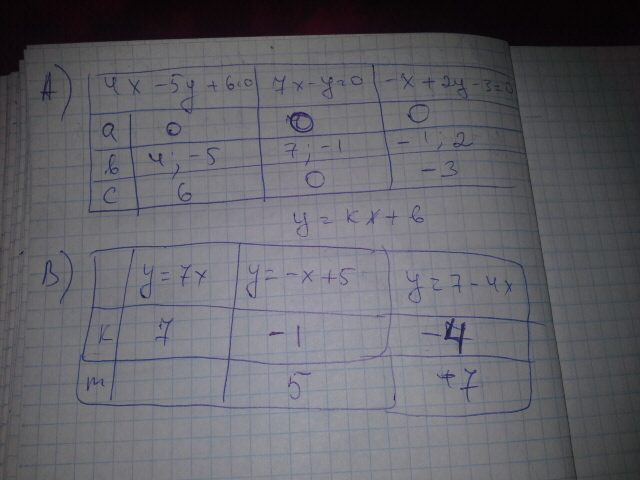 А)
4x - 5y + 6=0 7x - y=0 -x + 2y - 3=0
a 0 0 0
в 4; -5 7; -1 -1; 2
c 6 0 -3
y = kx + в
В)
y = 7x y = -x + 5 y = 7 - 4x
к 7 -1 -4
m 5 +7